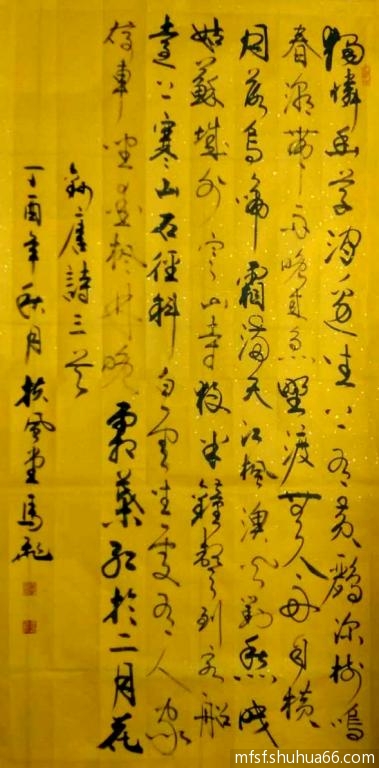 獨憐幽草澗邊生上有黃鸝深樹鳴
春潮帶雨晚來急野渡無人舟自橫
月落烏啼霜滿天江楓漁火對愁眠
姑蘇城外寒山寺夜半鐘聲到客船
遠上寒山石徑斜白雲生處有人家
停車坐愛楓林晚霜葉紅於二月花
錄唐詩三首
丁酉年秋月扶風堂馬
mfsfshuhua66.com